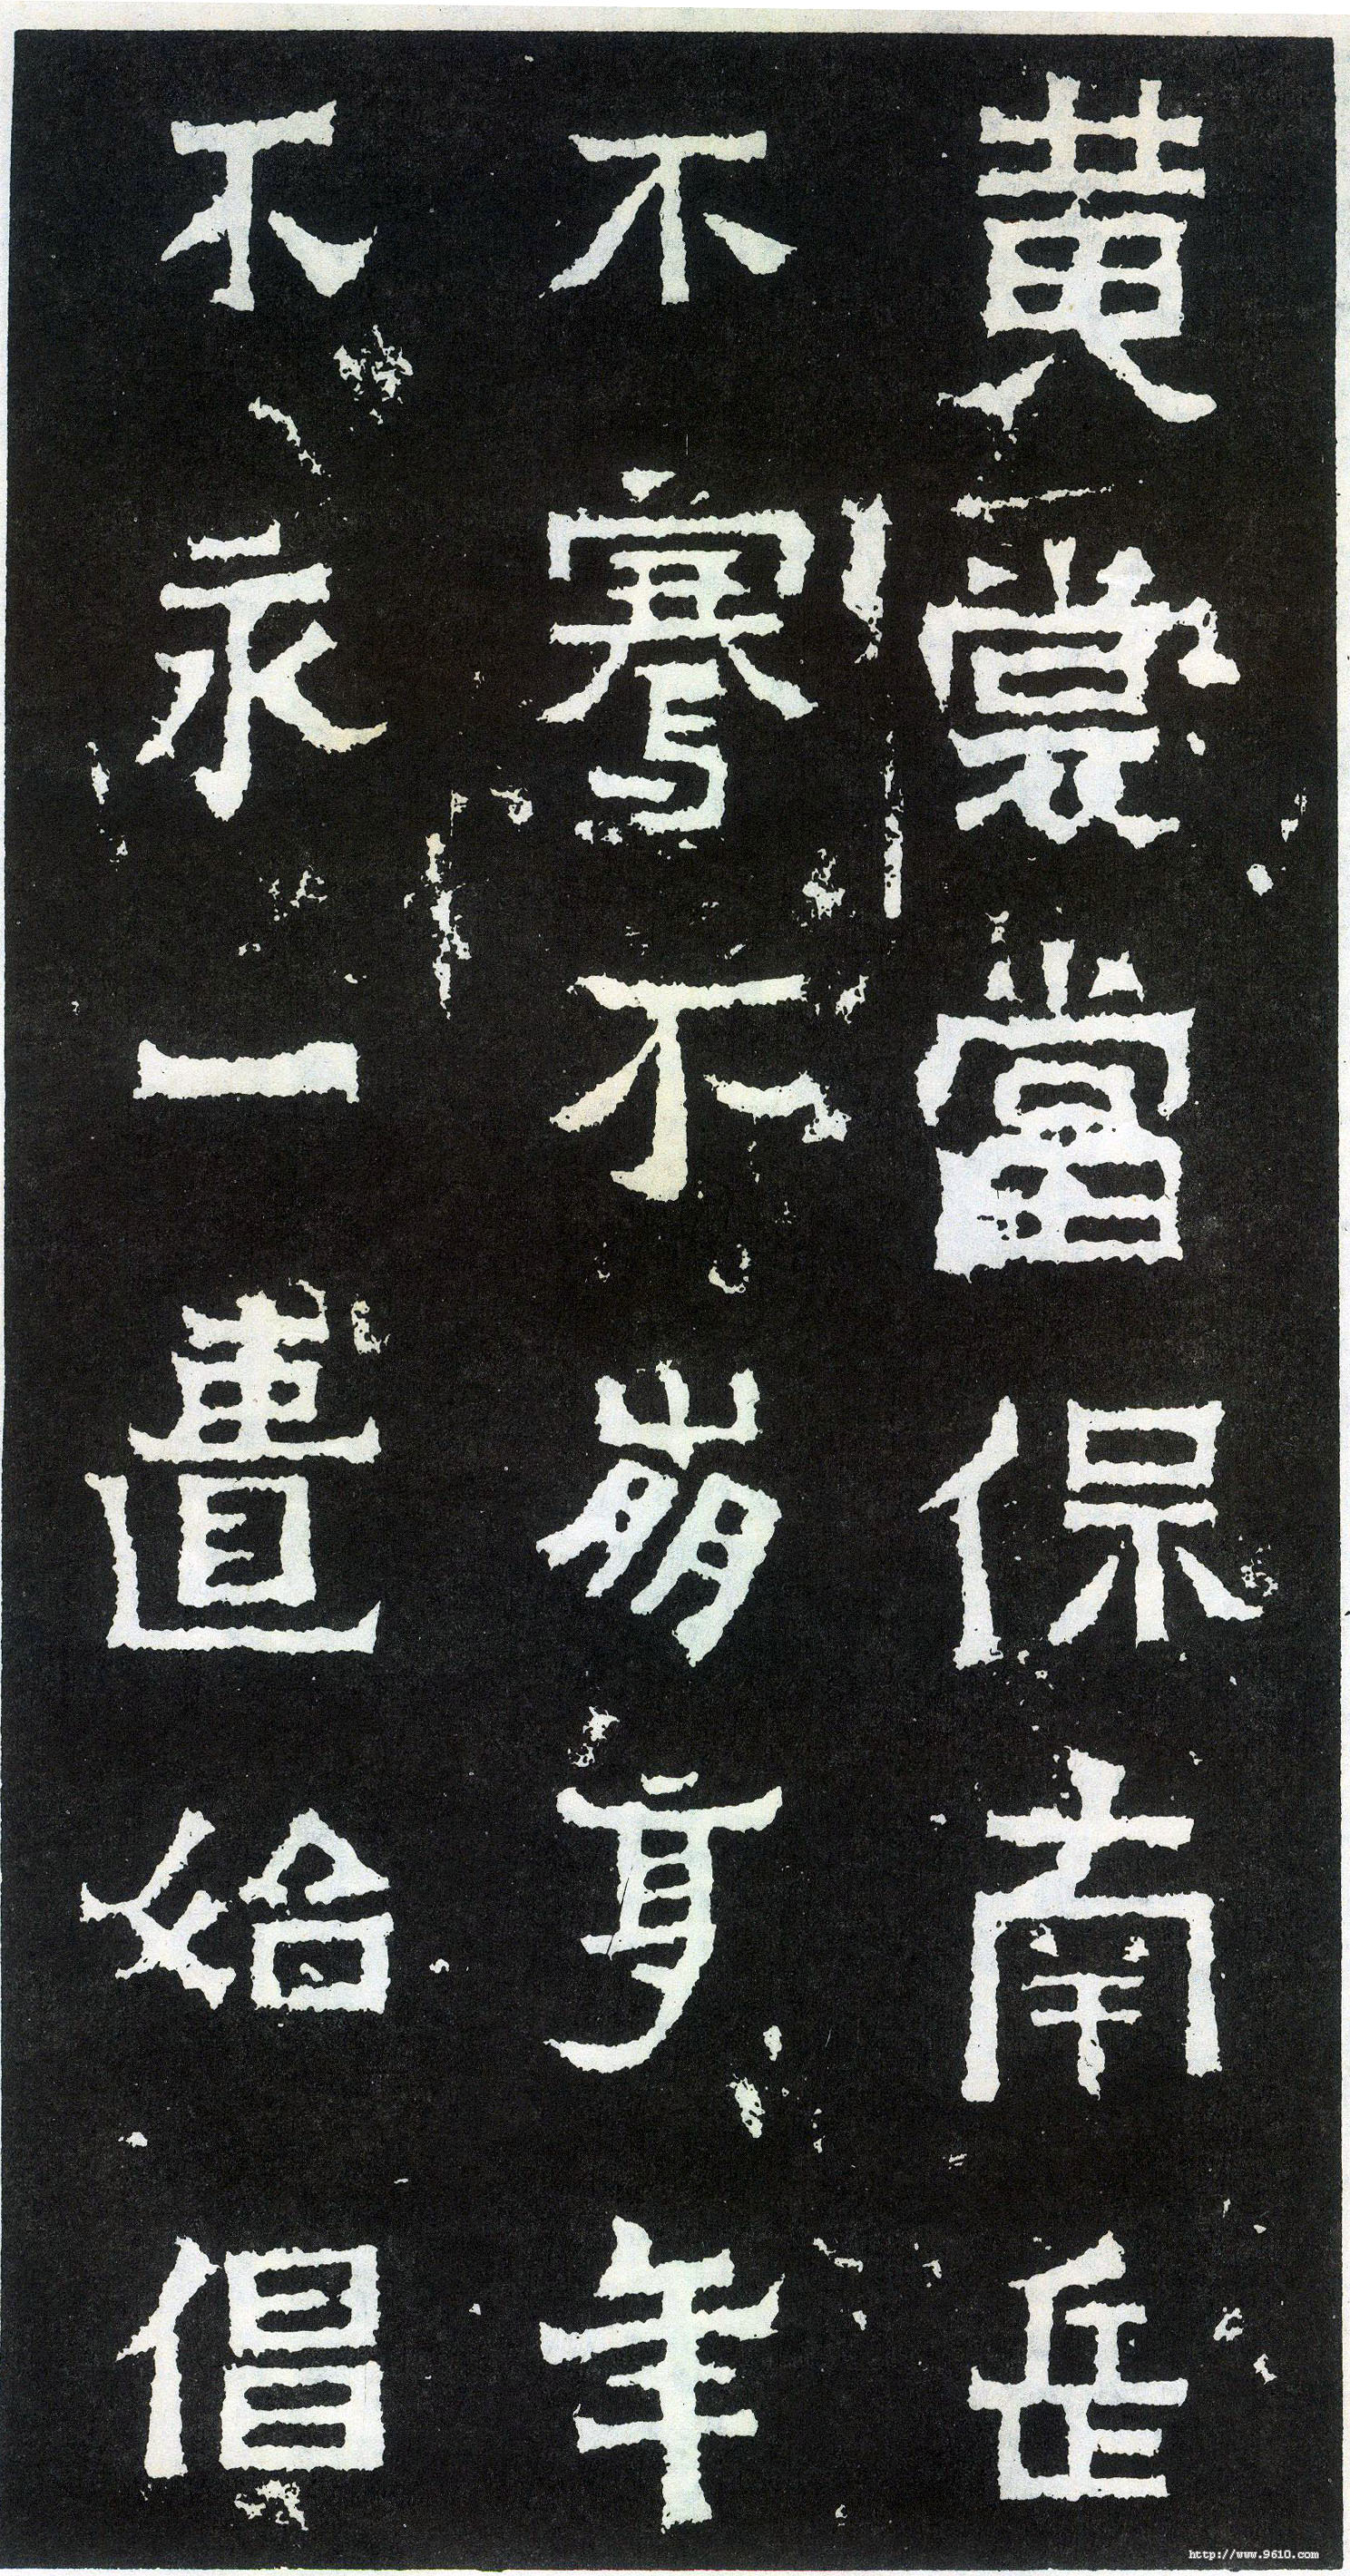 黃裳當保南岳
不騫不崩享年
不永一匱始倡
http://www.9610.com